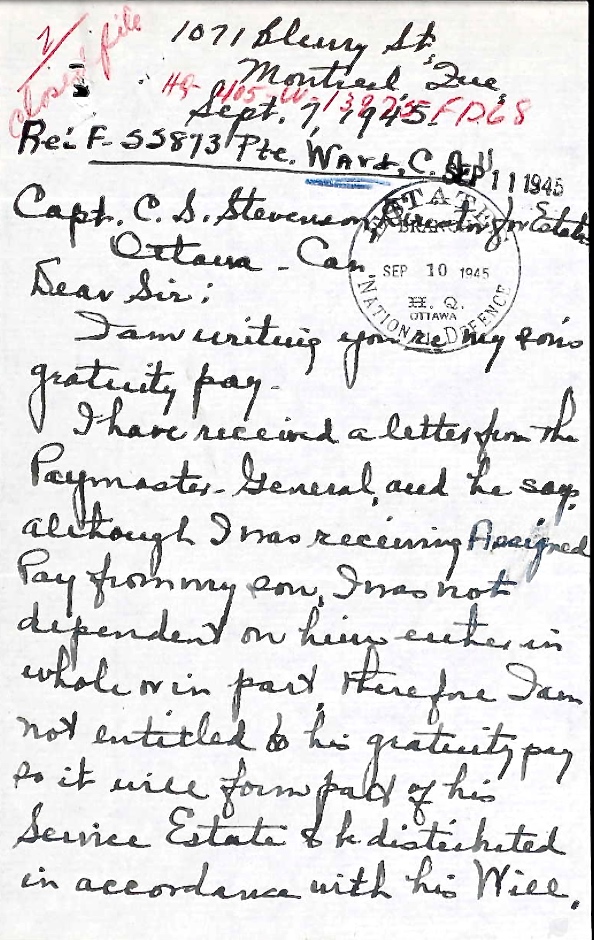 2
Closed file
1071 Bleury St,
Montreal, Que,
HQ 405-W-
FD68
Sept. 7, 1945.
Re: F-55873 Pte. Ward, C.
SEP 11 1945
Capt. C. S. Stevenson, Director for Estates
ESTATES
BRANCH
SEP 10 1945
H. Q.
OTTAWA
NATIONAL DEFENCE
Ottawa - Can.
Dear Sir:
I am writing you re my son's
gratuity pay.
I have received a letter from the
Paymaster-General, and he say,
although I was receiving Assigned
Pay from my son, I was not
dependent on him either in
whole or in part, therefore I am
not entitled to his gratuity pay
so it will form part of his
Service Estate & be distributed
in accordance with his Will.